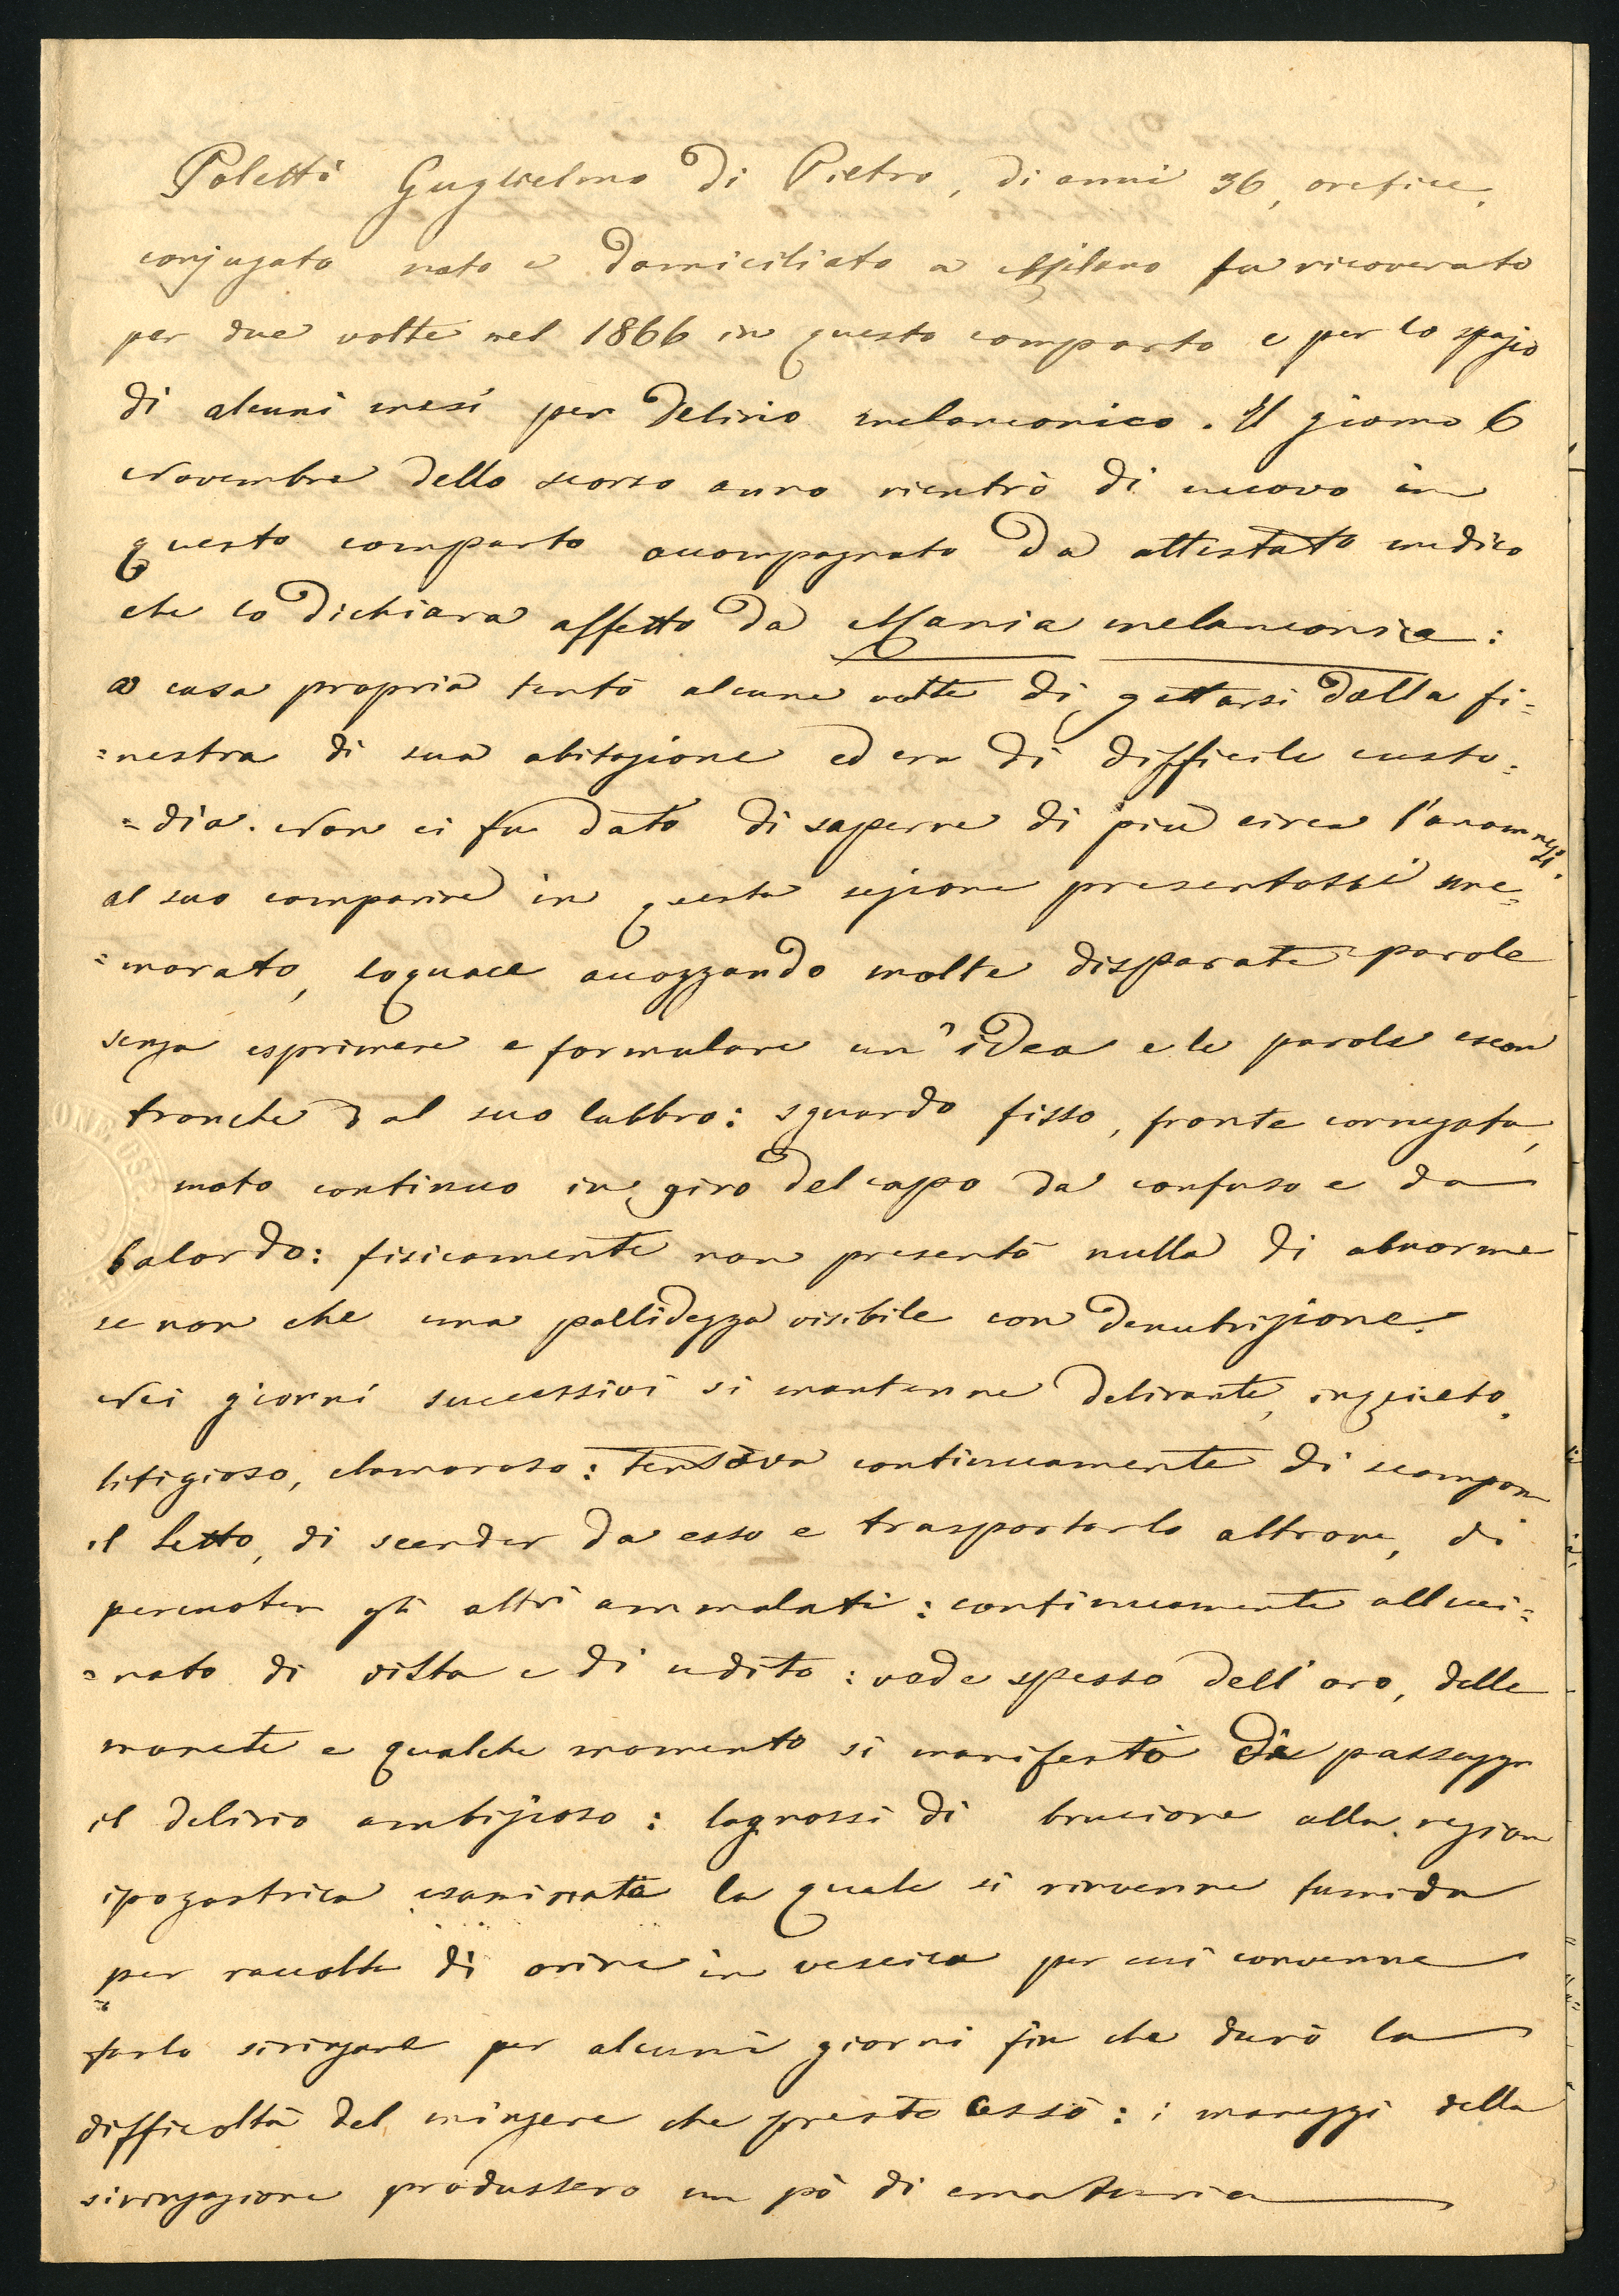 Poletti Guglielmo di Pietro, di anni 36, orefice,
conjugato nato e domiciliato a Milano fu ricoverato
per due volte nel 1866 in questo comparto e per lo spazio
di alcuni mesi per delirio melanconico. Il giorno 6
Novembre dello scorso anno rientrò di nuovo in
questo comparto accompagnato da attestato medico
che lo dichiara affetto da Mania melanconica:
a casa propria tentò alcune volte di gettarsi dalla fi=
=nestra di sua abitazione ed era di difficile custo=
=dia. Non ci fu dato di saperne di più circa l'anamnesi.
al suo comparire in questa sezione presentossi sme=
=morato, loquace accozzando molte disparate parole
senza esprimere e formulare un'idea e le parole escon
tronche dal suo labbro: sguardo fisso, fronte corrugata,
moto continuo in giro del capo da confuso e da
balordo: fisicamente non presentò nulla di abnorme
se non che una pallidezza visibile con denutrizione.
Nei giorni successivi si mantenne delirante, inquieto,
litigioso, clamoroso: tentava continuamente di scompor
il letto, di scender da esso e trasportarlo altrove, di
percuoter gli altri ammalati: continuamente alluci=
=nato di vista e di udito: vede spesso dell'oro, delle
monete e qualche momento si manifestò di passaggio
il delirio ambizioso: lagnossi di bruciore alla region
ipogastrica esaminata la quale si rinvenne tumida
per raccolta di orine in vescica per cui convenne
farlo siringare per alcuni giorni fin che durò la
difficoltà del mingere che presto cessò: i maneggi della
siringazione produssero un pò di ematuria